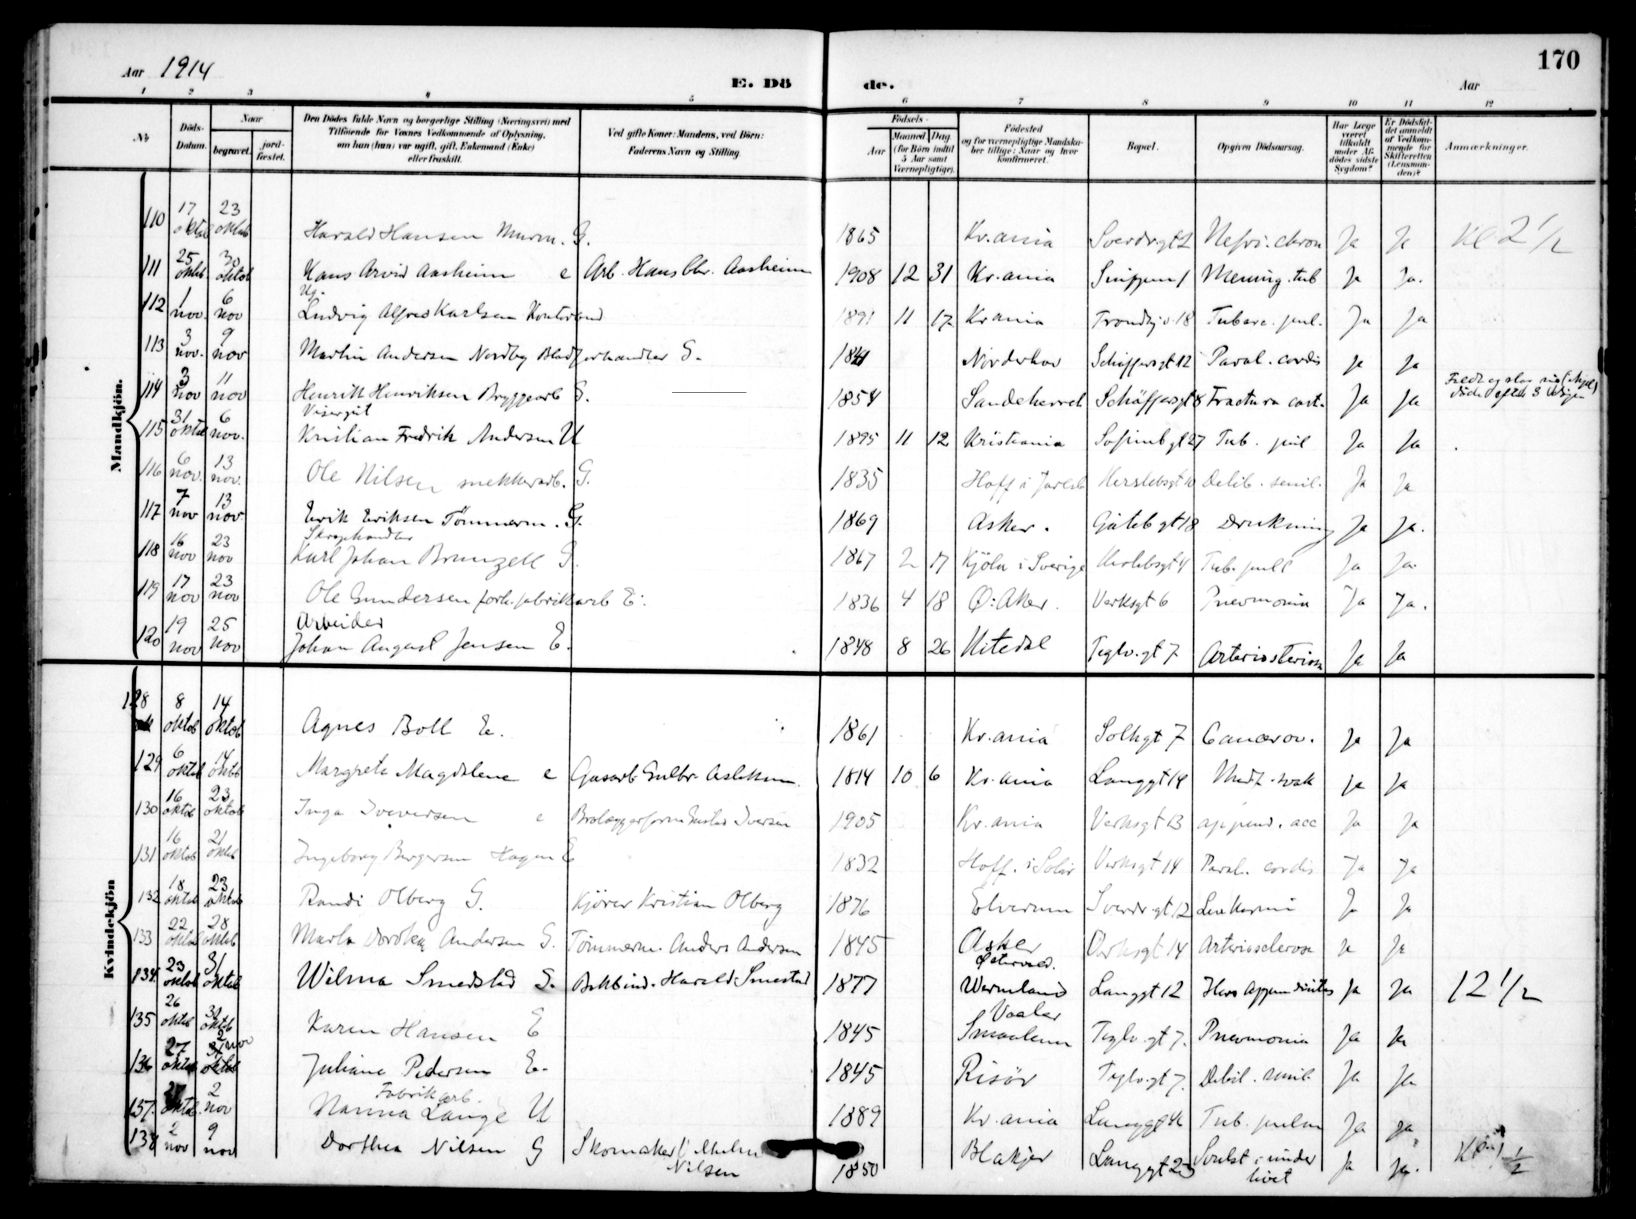 Aar 1914
E. Döde.
170
Aar
1 2 3 4 5 6 7 8 9 10 11 12
No.
Döds-Datum.
Naar begravet. jordfæstet.
Den Dödes fulde Navn og borgerlige Stilling (Næringsvei) med Tilföiende for Voxnes Vedkommende af Oplysning, om han (hun) var ugift, gift, Enkemand (Enke) eller fraskilt.
Ved gifte Koner: Mandens, ved Börn: Faderens Navn og Stilling
Födsels-
Aar
Maaned Dag (for Börn indtil 5 Aar samt Værnepligtige).
Födested og for værnepligtige Mandskaber tillige: Naar og hvor konfirmeret.
Bopæl.
Opgiven Dödsaarsag.
Har Læge været tilkaldt under Afdödes sidste Sygdom?
Er Dödsfaldet anmeldt af Vedkommende for Skifteretten (Lensmanden)?
Anmærkninger.
Mandkjön.
110 17 oktob 23 oktob Harald Hansen Murm. G. 1865 Kr.ania Sverdrgt 2 Nefri. chron Ja Ja Kl 2 1/2
111 25 oktob 30 oktob Hans Arvid Aasheim e Arb. Hans Chr. Aasheim 1908 12 31 Kr.ania Mening. tub Ja Ja.
112 1 nov. 6 nov Ug. Ludvig Alfred Karlsen Kontorund 1891 11 17 Kr.ania Trondhj.v 18 Tuberc. pul. Ja Ja
113 3 nov. 9 nov Martin Andersen Nordby Bladforhandler G. 1841 Norderhov Schäffersgt 12 Paral. cordis Ja Ja
114 3 nov 11 nov Henrik Henriksen Bryggearb G. 1854 Sandeherred Schäffersgt 8 Fractura cost. Ja Ja
115 31 oktob 6 nov. Visergut Kristian Fredrik Andersen U 1895 11 12 Kristiania Sofienbgt 27 Tub. pul Ja Ja
116 6 nov. 13 nov. Ole Nilsen snekkerarb. G. 1835 Hoff i Jarlsb Herslebsgt 10 Debil. senil. Ja Ja
117 7 nov 13 nov Erik Eriksen Tömmerm. G. 1869 Asker. Götebgt 18 Drukning Ja Ja.
118 16 nov 23 nov Skraphandler Karl Johan Brunzell G. 1867 2 17 Kjöln i Sverige Herslebsgt 4 Tub. pull Ja Ja.
119 17 nov 23 nov Ole Gundersen forh. fabrikarb E. 1836 4 18 Ö: Aker. Verksgt 6 Pneumonia Ja Ja.
120 19 nov 25 nov Arbeider Johan August Jensen E. 1848 8 26 Nitedal Teglv.gt 7 Ja Ja
Kvindekjön
128 8 oktob 14 oktob Agnes Boll E. 1861 Kr.ania Solhgt 7 Cancer ov. Ja Ja
129 6 oktob 14 oktob Margrete Magdalene e Gasarb Gulbr. Aslaksen 1814 10 6 Kr.ania Langgt 14 Medf. svak Ja Ja
130 16 oktob 23 oktob Inga Iversen e Brolæggerform Gustav Iversen 1905 Kr.ania Verksgt 13 append. acc Ja Ja
131 16 oktob 21 oktob Ingeborg Bergersen Hagen E 1832 Hoff. i Solör Verksgt 14 Paral. cordis Ja Ja
132 18 oktob 23 oktob Randi Olberg G. Kjörer Kristian Olberg 1876 Elverum Sverdrgt 12 Leukæmi Ja Ja
133 22 oktob 28 oktob Marta Dorthea Andersen G. Tömmerm. Anders Andersen 1845 Asker Verksgt 14 Arteriosclerose Ja Ja
134 23 oktob 31 oktob Wilma Smedstad G. Bokbind. Harald Smestad 1877 Östervald. Wermland Langgt 12 Ja Ja 12 1/2
135 26 oktob 31 oktob Karen Hansen E 1845 Vaaler Smaalenn Teglv.gt 7. Pneumonia Ja Ja
136 27 oktob 3 nov Juliane Pedersen E. 1845 Risör Teglv.gt 7. Debil. senil. Ja Ja
137. 27 oktob. 2 nov Fabrikarb. Hanna Lange U 1889 Kr.ania Tub. pulm Ja Ja
138 2 nov 9 nov Dorthea Nilsen G Skomaker Vilhelm Nilsen 1850 Blakjer Langgt 23 Svulst i underlivet Ja Ja. Kl 1 1/2